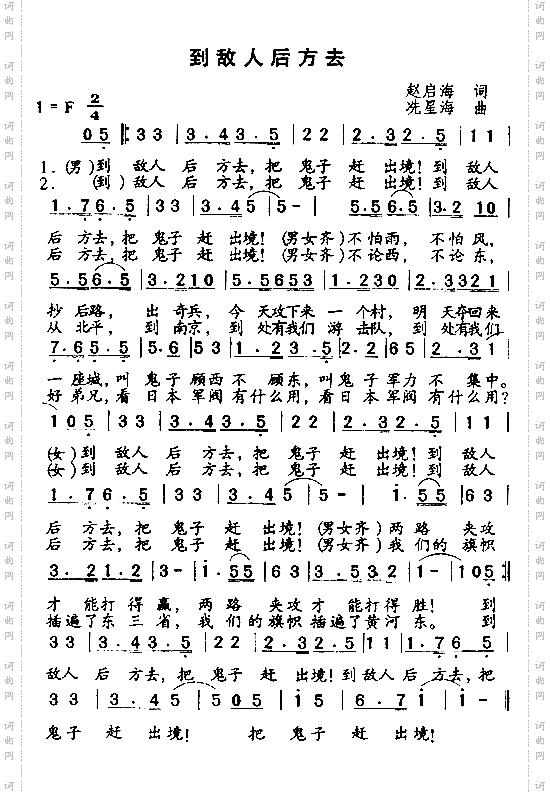 到敌人后方去
赵启海 词
1=F 2/4 冼星海 曲
05 |: 33 | 3.43.5 | 22 | 2.32.5 | 11 |
1.(男)到 敌人 后 方去,把 鬼子 赶 出境!到 敌人
2. (到)敌人 后 方去,把 鬼子 赶 出境!到 敌人
1.76.5 | 33 | 3.45 | 5- | 5.56.5 | 3.2 10 |
后 方去,把 鬼子 赶 出境!(男女齐)不怕雨, 不怕风,
后 方去,把 鬼子 赶 出境!(男女齐)不论西, 不论东,
5.56.5 | 3.210 | 5.5653 | 1.230 | 2.3321 |
抄 后路, 出 奇兵, 今 天攻下来 一个村, 明 天夺回来
从 北平, 到 南京,到 处有我们 游 击队, 到 处有我们
7.65.5 | 5.6 53 | 1.235 | 2.2 65 | 2.31 |
一 座城,叫 鬼子 顾西不 顾东,叫鬼子 军力 不 集中。
好 弟兄,看 日本 军阀 有什么用,看日本 军阀 有什么用?
105 | 33 | 3.43.5 | 22 | 2.32.5 | 11 |
(女)到 敌人 后 方去,把 鬼子 赶 出境!到 敌人
(女)到 敌人 后 方去,把 鬼子 赶 出境!到 敌人
1.76.5 | 33 | 3.45 | 5- | 1.55 | 63 |
后 方去,把 鬼子 赶 出境!(男女齐)两路 夹攻
后 方去,把 鬼子 赶 出境!(男女齐)我们的 旗帜
3.21.2 | 3- | 1.55 | 63 | 3.532 | 1- | 105 :|
才 能打 得 赢, 两路 夹攻 才 能打得 胜! 到
插遍了东 三 省, 我们的 旗帜 插遍了黄河 东。 到
33 | 3.43.5 | 22 | 2.32.5 | 11 | 1.76.5 |
敌人 后 方去,把 鬼子 赶 出境!到敌人 后 方去,把
33 | 3.45 | 505 | 15 | 6.71 | 1- ‖
鬼子 赶 出境! 把 鬼子 赶 出境!
词曲网